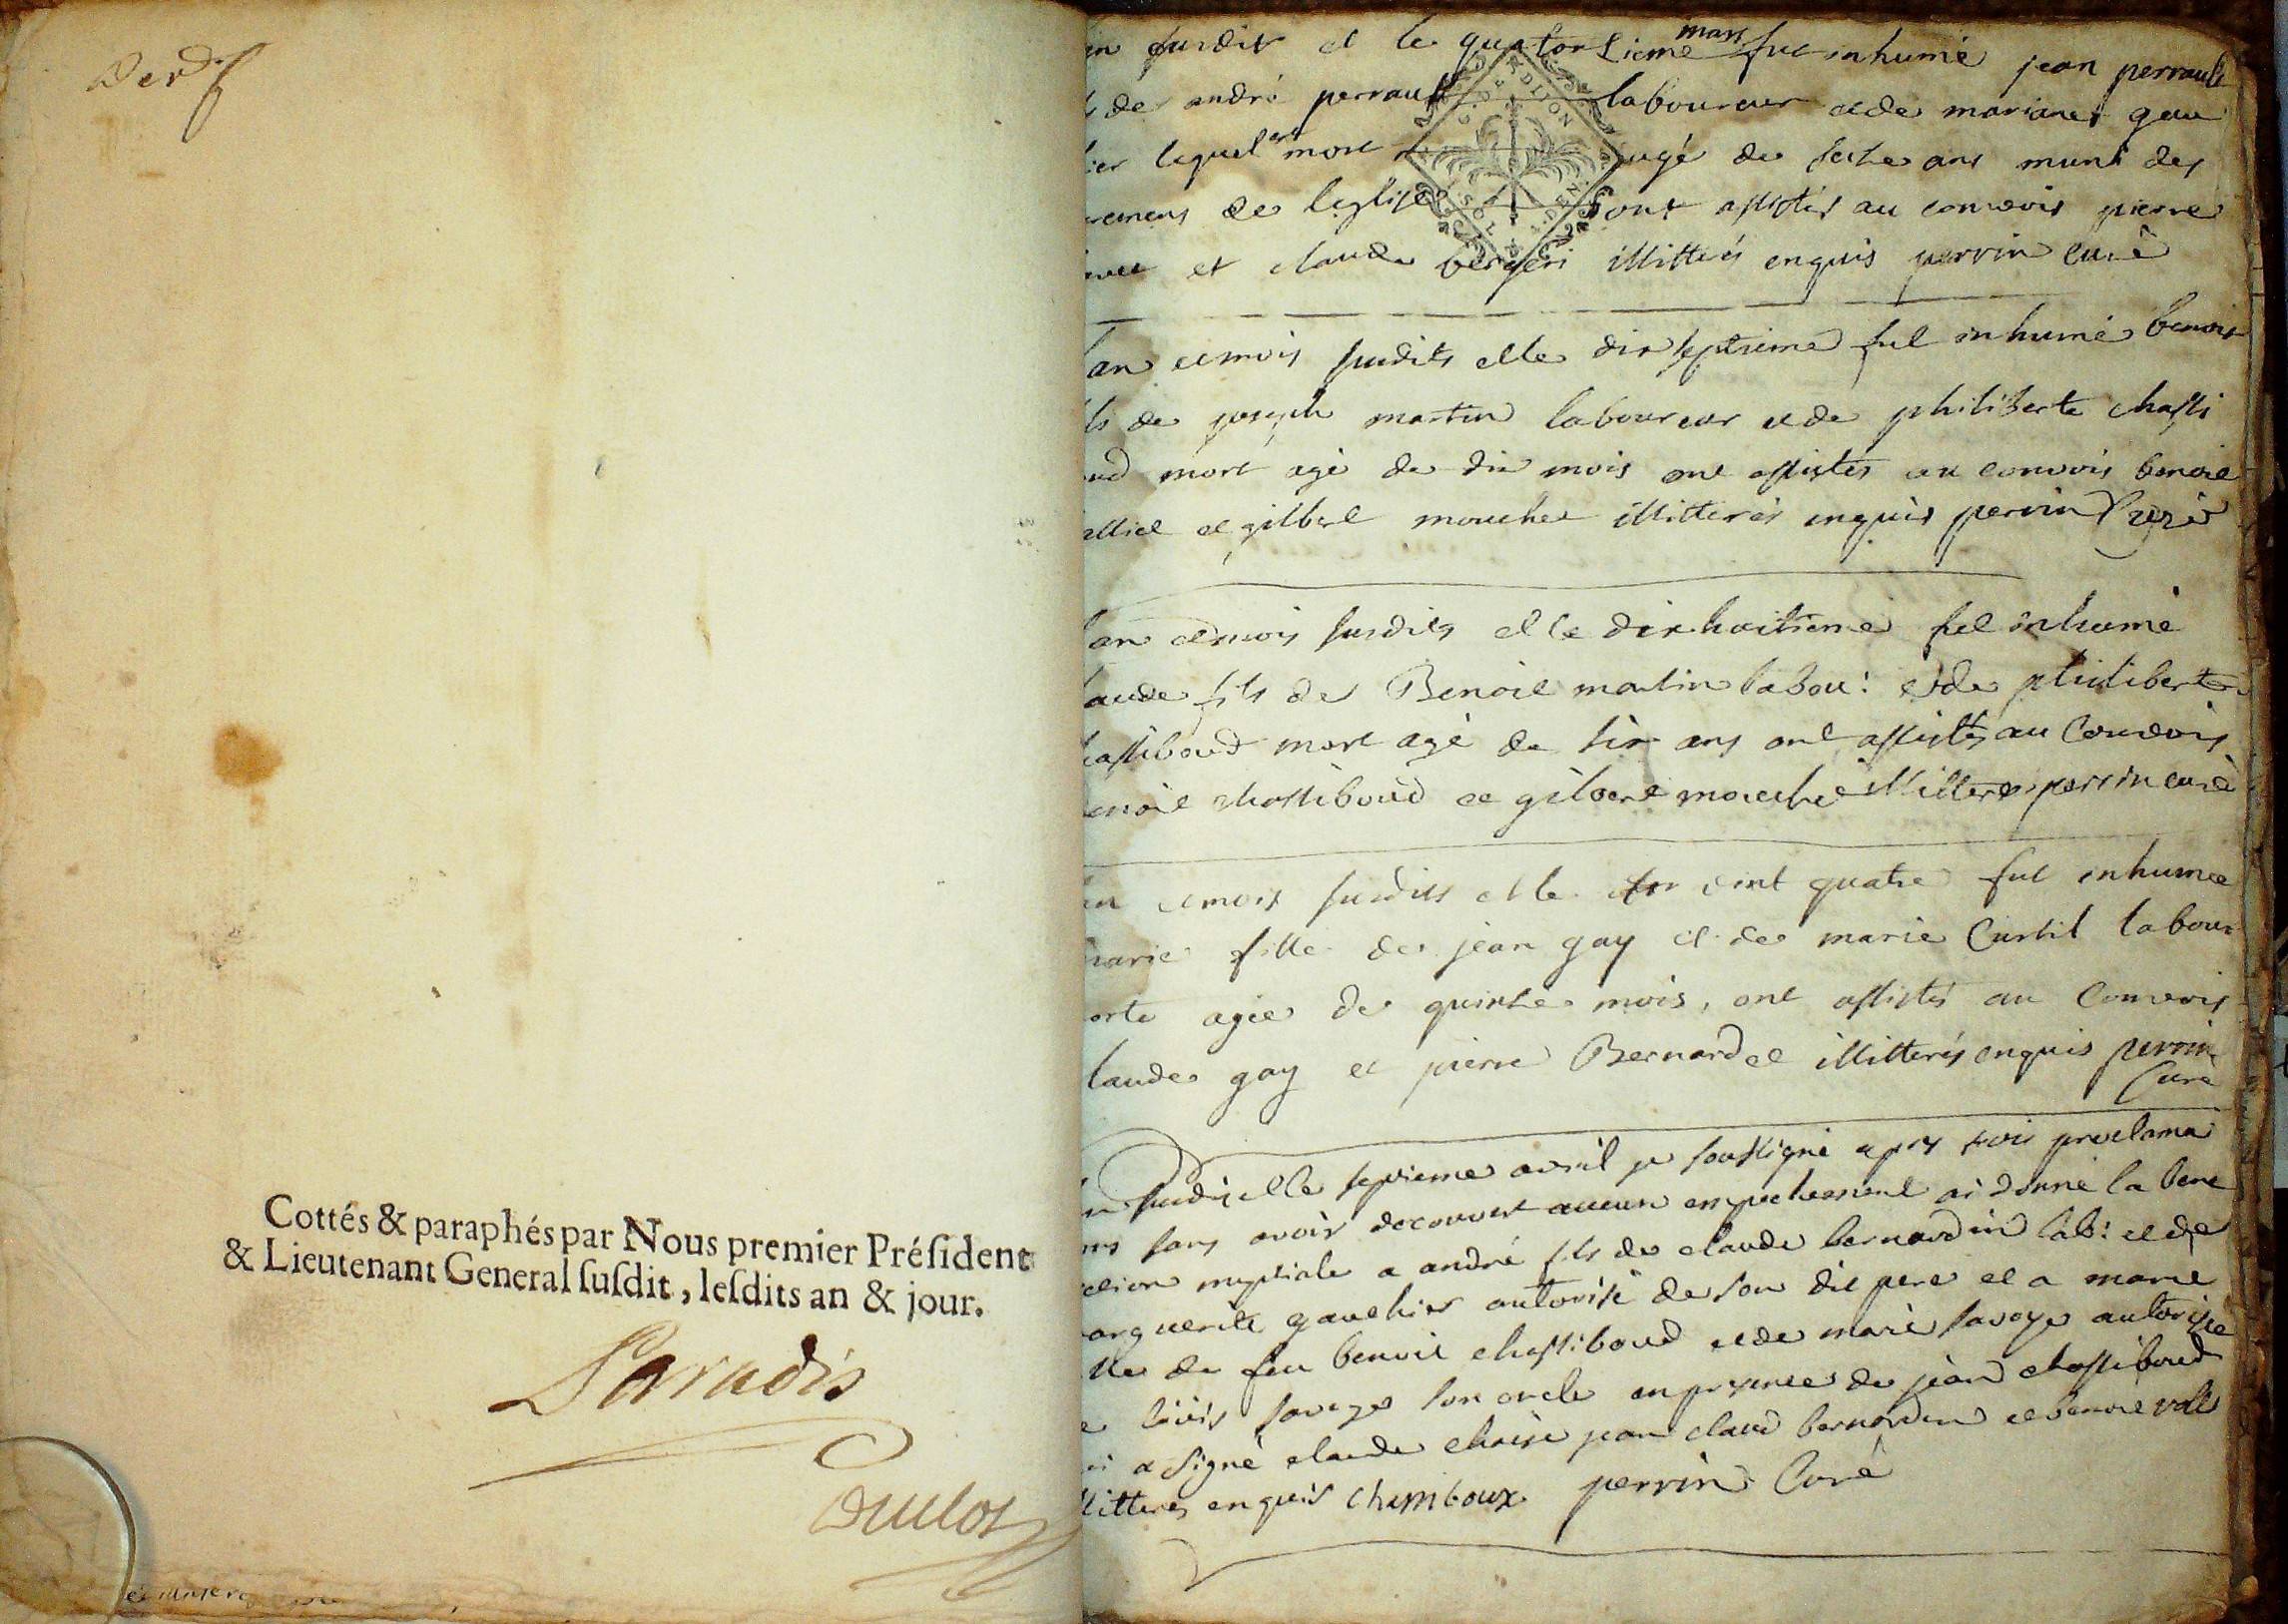 Cottés & paraphés par Nous premier Préſident
& Lieutenant General ſuſdit, leſdits an & jour.
Paradis
Duclos
susdit et le quatorsieme mars fut inhumé jean perrault
de andré perrault laboureur et de mariane gau
lequel est mort agé de seshe ans muni des
de leglise sont assistés au convois pierre
et claude bergeri illitterés enquis perrin curé
DIJON
an et mois susdits et le dix septieme fut inhumé benoit
ls de joseph martin laboureur et de philiberte chassi
mort agé de dix mois ont assistés au convois benoit
et gilbert mouche illitterés enquis perrin Curé
an et mois susdits et le dix huitieme fut inhumé
laude fils de Benoit martin labou: et de philiberte
hassiboud mort agé de six ans ont assistés au Convois
enoit chassiboud et gilbert mouche illitterés perrin curé
an et mois susdits et le vint quatre fut inhumee
marie fille de jean gay et de marie Curtil labour
orte agée de quinhe mois, ont assistés au Convois
laude gay et pierre Bernard et illitterés enquis perrin
Curé
susdit et le septieme avril je soussigné apres trois proclama
ons sans avoir decouvert aucun empechement ai donné la bene
diction nuptiale a andré fils de claude bernardin lab: et de
marguerite gauthier autorisé de son dit pere et a marie
lle de feu benoit chassiboud et de marie savoye autorisée
e louis savoye son oncle en presence de jean chassiboud
a signé claude chaise jean claud bernardin et benoit
litterés enquis Chassiboux perrin Curé